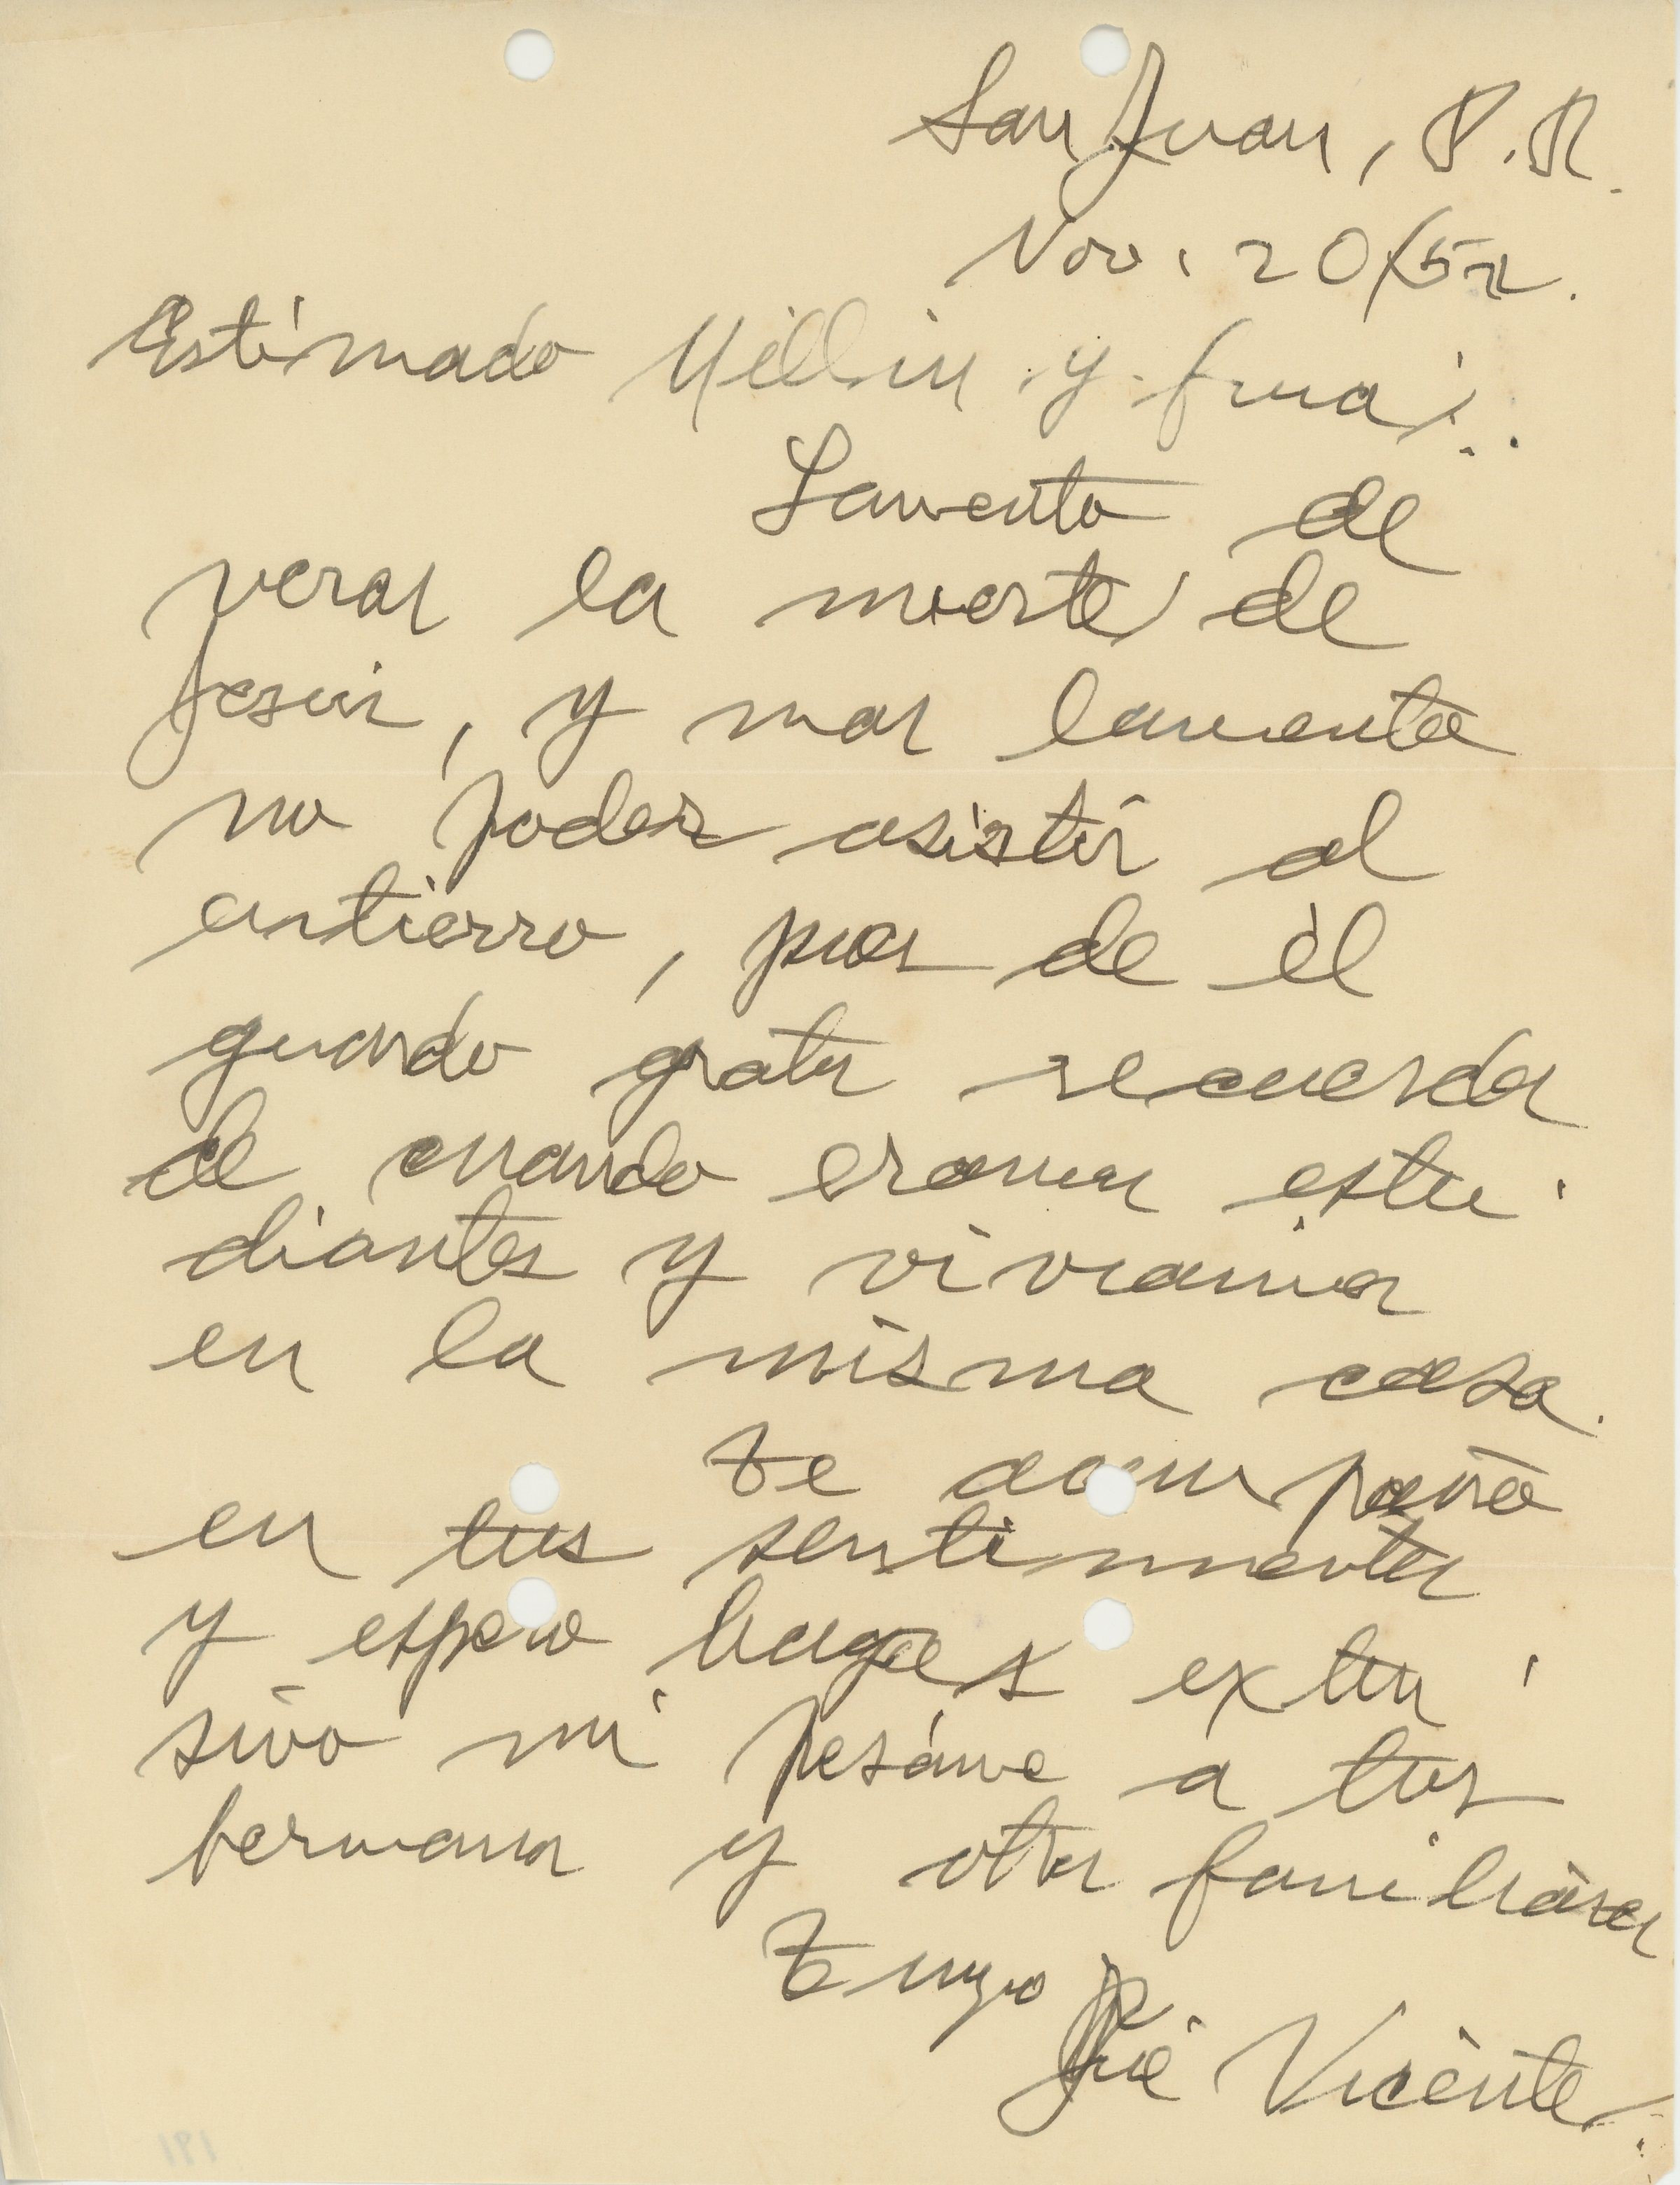 San Juan, P.R.
Nov. 20/52.
Estimado Millin y fmai:
Lamento de
veras la muerte de
Jesús, y mas lamento
no poder asistir al
entierro, pues de él
guardo gratos recuerdos
de cuando eramos estu-
diantes y viviamos
en la misma casa.
Te acompaño
en tus sentimientos
y espero hagas exten-
sivo mi pesáme a tus
hermanos y otros familiares
Tuyo
José Vicente.